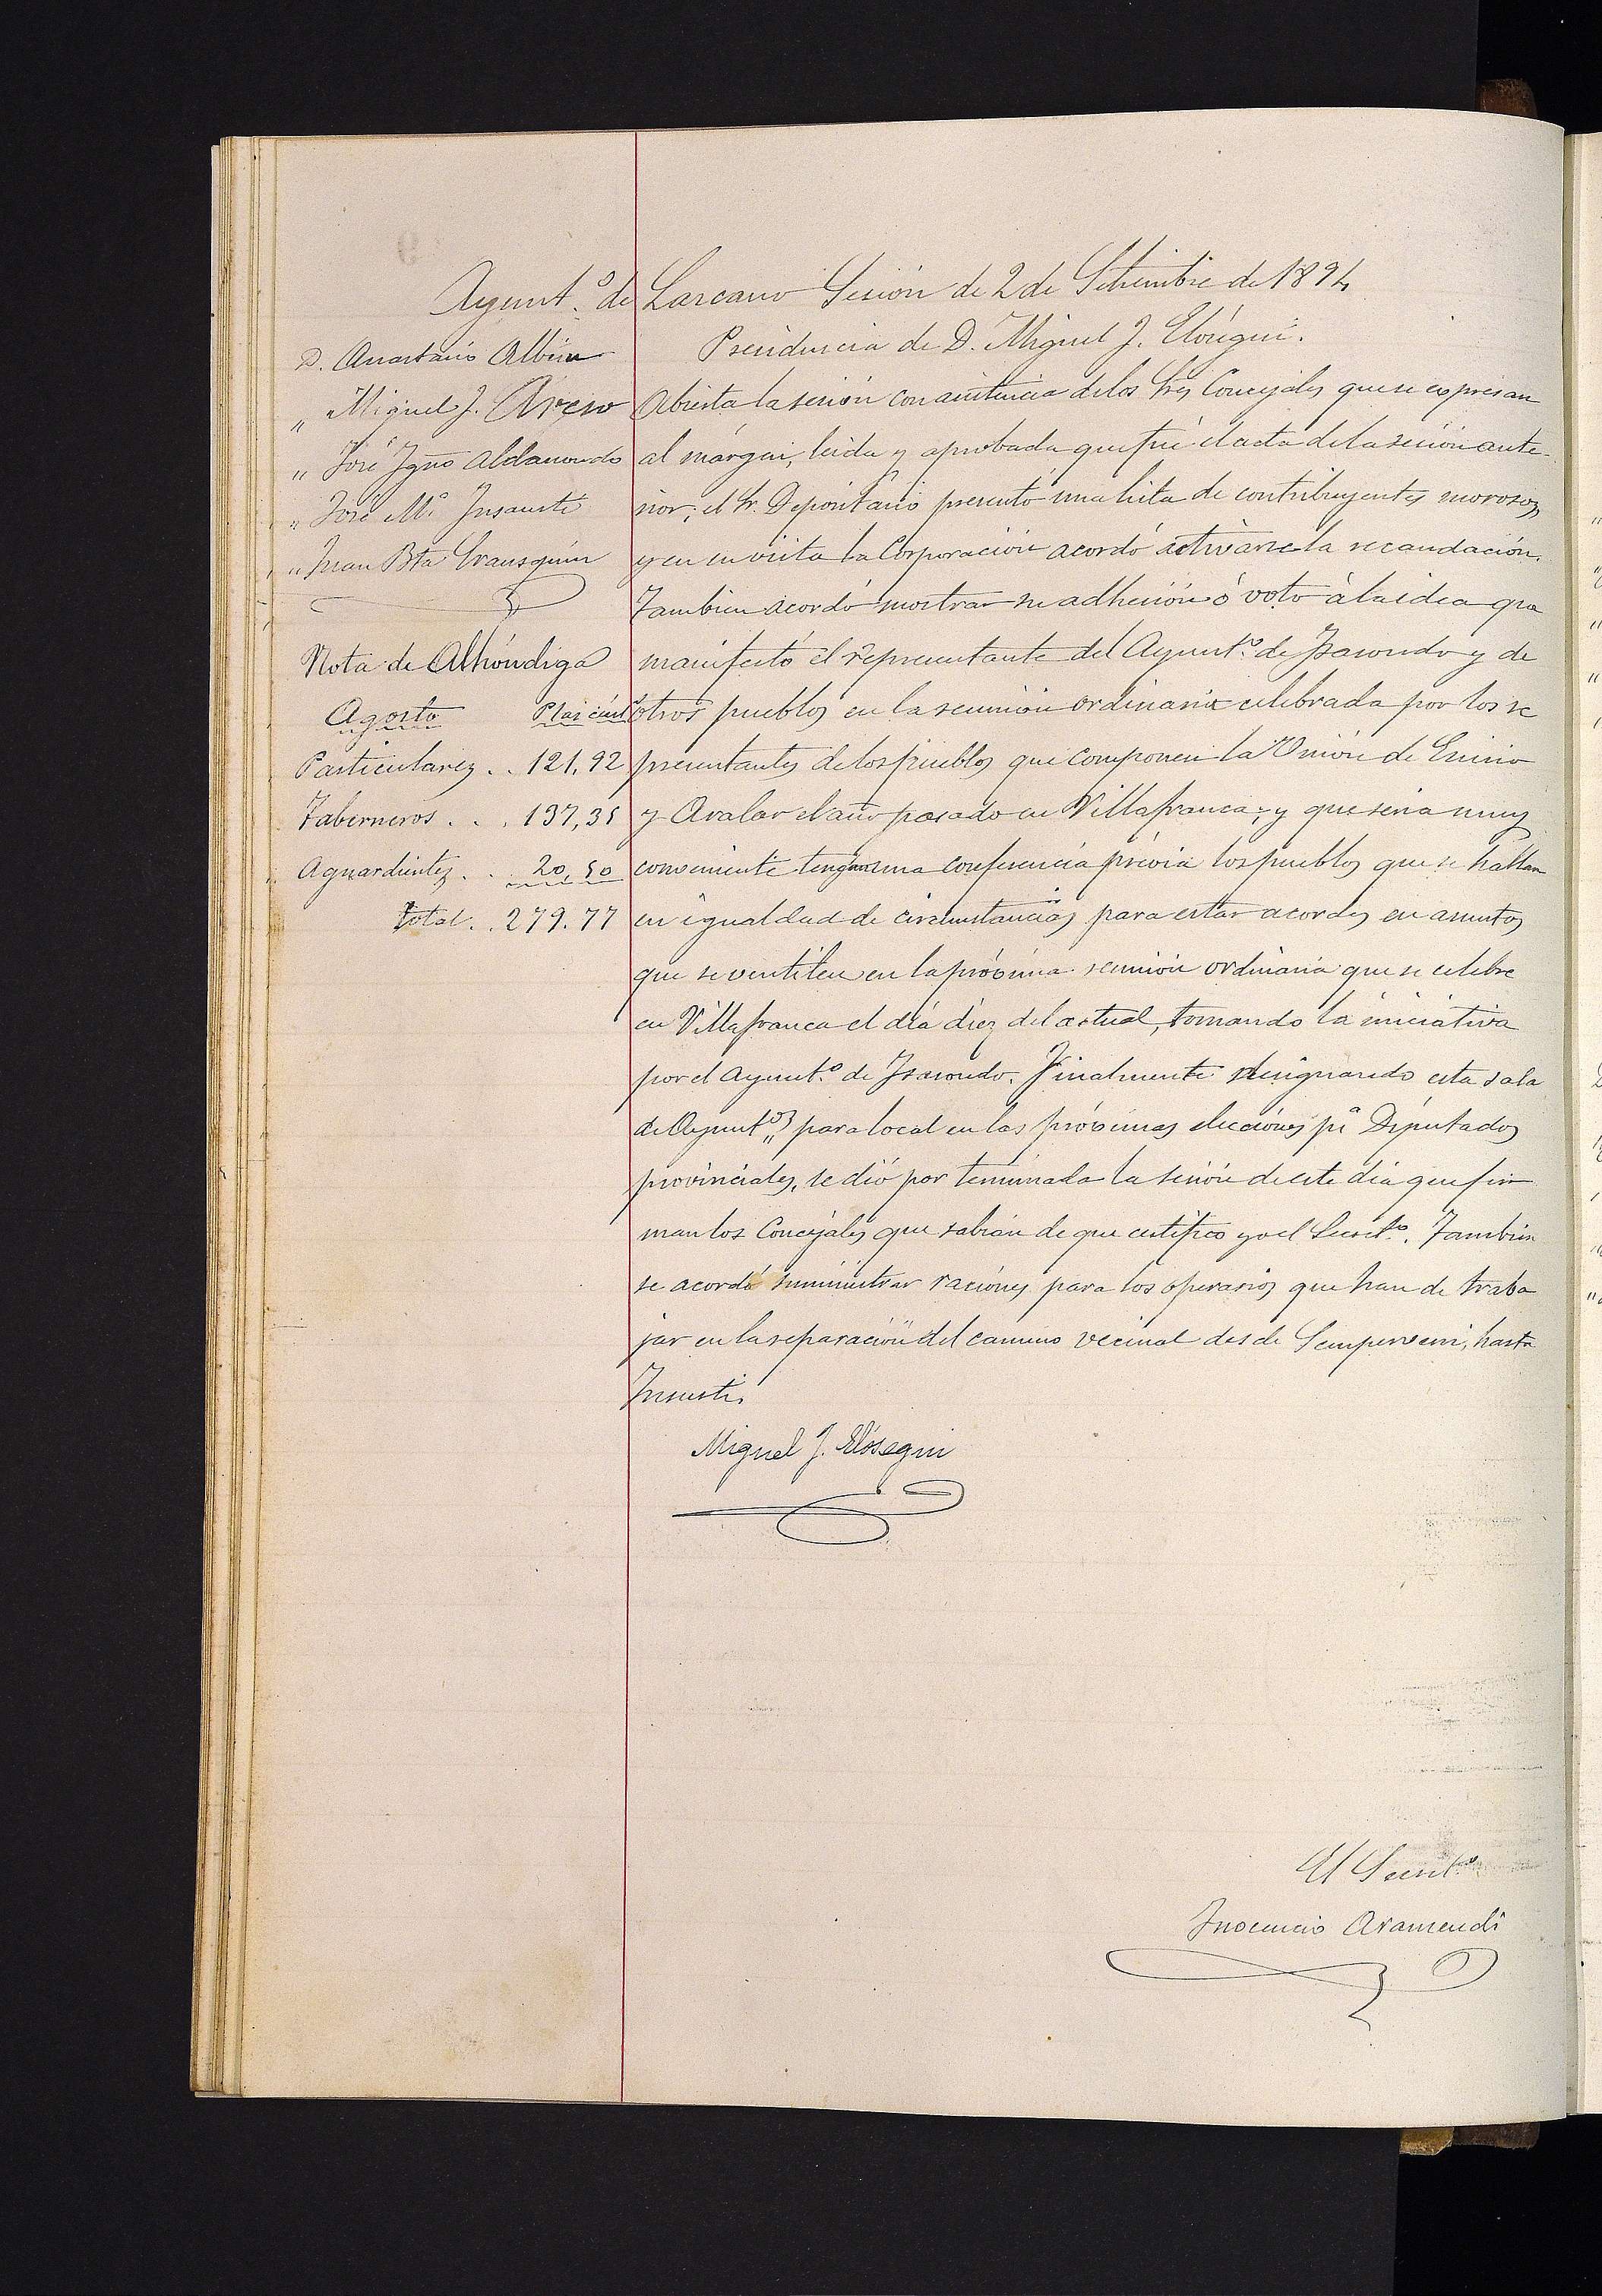 Ayunt.º de Lazcano Sesión de 2 de Setiembre de 1894
Presidencia de D. Miguel J. Elósegui.
D. Anastasio Albisu
" Miguel J. Areso
" José Ygnº Aldasoro
" José Mª Insausti
" Juan Bta
Nota de Alhóndiga
Agosto Ptas cént
Particulares . . 121,92
Taberneros . . . 137,35
Aguardientes . . 20,50
Total . . 279.77
Abierta la sesión con asistencia de los Sres Concejales que se expresan
al márgen, leida y aprobada que fué el acta de la sesión ante-
rior; el Sr. Depositario presentó una lista de contribuyentes morosos,
y en su vista la Corporación acordó activarse la recaudación.
Tambien acordó mostrar su adhesión ó voto á la idea que
manifestó el representante del Ayunt.º de Isasondo y de
otros pueblos en la reunión ordinaria celebrada por los re
presentantes de los pueblos que componen la Unión de Enirio
y Aralar el año pasado en Villafranca; y que seria muy
conveniente tengan una conferencia prévia los pueblos que se hallan
en igualdad de circunstancias para estar acordes en asuntos
que se ventilen en la próxima reunión ordinaria que se celebre
en Villafranca el día diez del actual, tomando la iniciativa
por el Ayunt.º de Isasondo. Finalmente designando esta sala
de Ayuntº para local en las próximas elecciones pª Diputados
provinciales, se dió por terminada la sesión de este dia que fir
man los Concejales que sabían de que certifico yo el Secretº. Tambien
se acordó suministrar raciones para los operarios que han de traba
jar en la reparación del camino vecinal desde hasta
Insausti.
Miguel J. Elósegui
El Secretº
Inocencio Aramendi